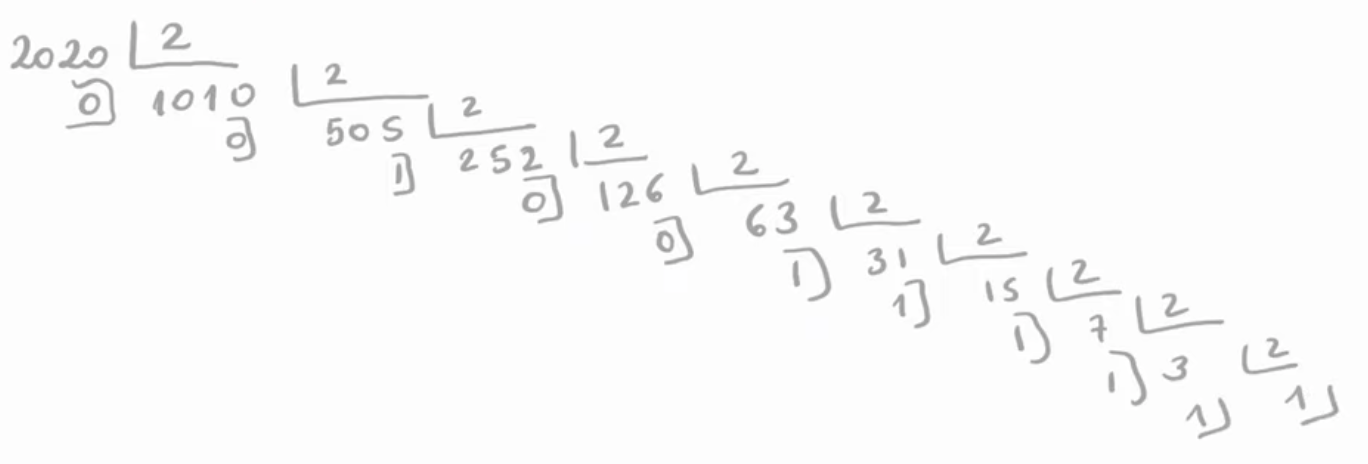 2020 2
0 1010 2
0 505 2
1 252 2
0 126 2
0 63 2
1 31 2
1 15 2
1 7 2
1 3 2
1 1